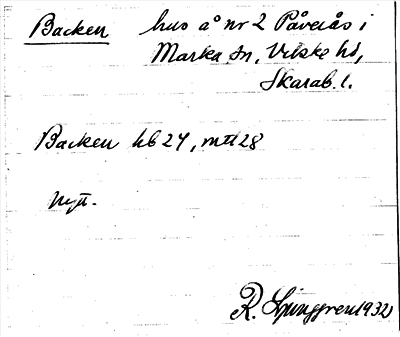 Backen hus å nr 2 Påverås i
Marka sn, Vilske hd,
Skarab. l.
Backen hb 24, mtl 28
Nytt.
R. Ljunggren 1932